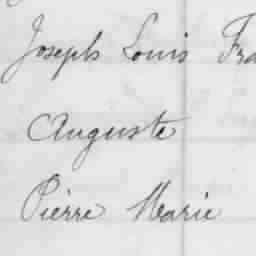 Joseph Louis Fra
Auguste
Pierre Marie